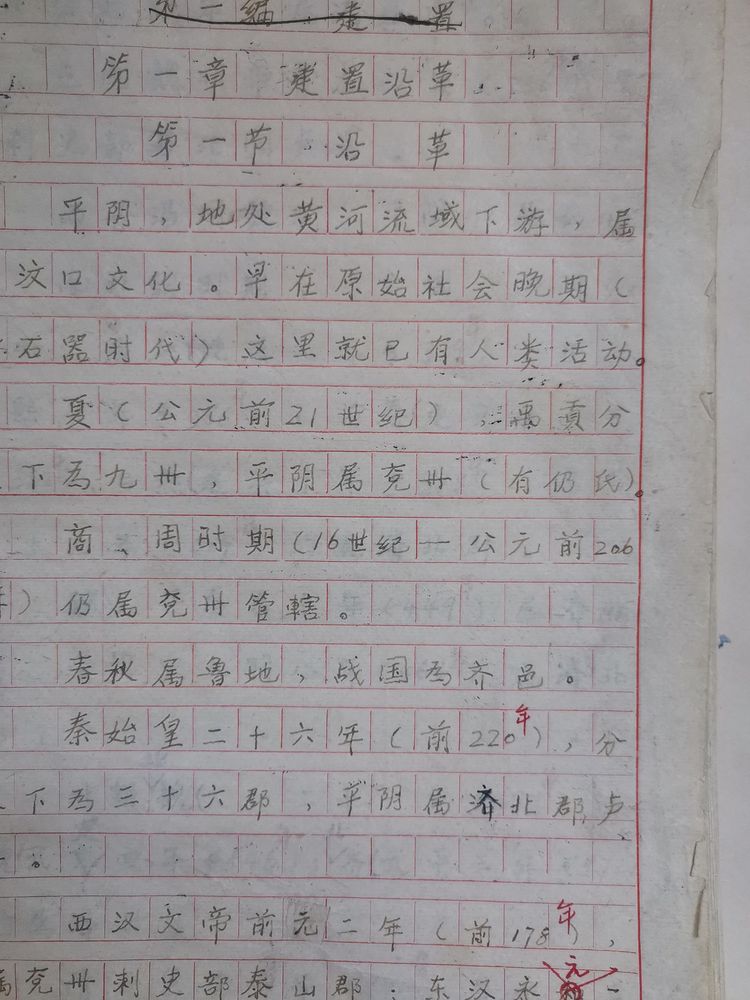 第一编 建置
第一章 建置沿革
第一节 沿革
平阴，地处黄河流域下游，属
汶口文化。早在原始社会晚期（
石器时代）这里就已有人类活动。
夏（公元前21世纪），禹贡分
下为九州，平阴属兖州（有仍氏）。
商、周时期（16世纪一公元前206
）仍属兖州管辖。
春秋属鲁地，战国为齐邑。
秦始皇二十六年（前220年），分
下为三十六郡，平阴属济北郡卢
。
西汉文帝前元二年（前178年），
属兖州刺史部泰山郡；东汉永元一